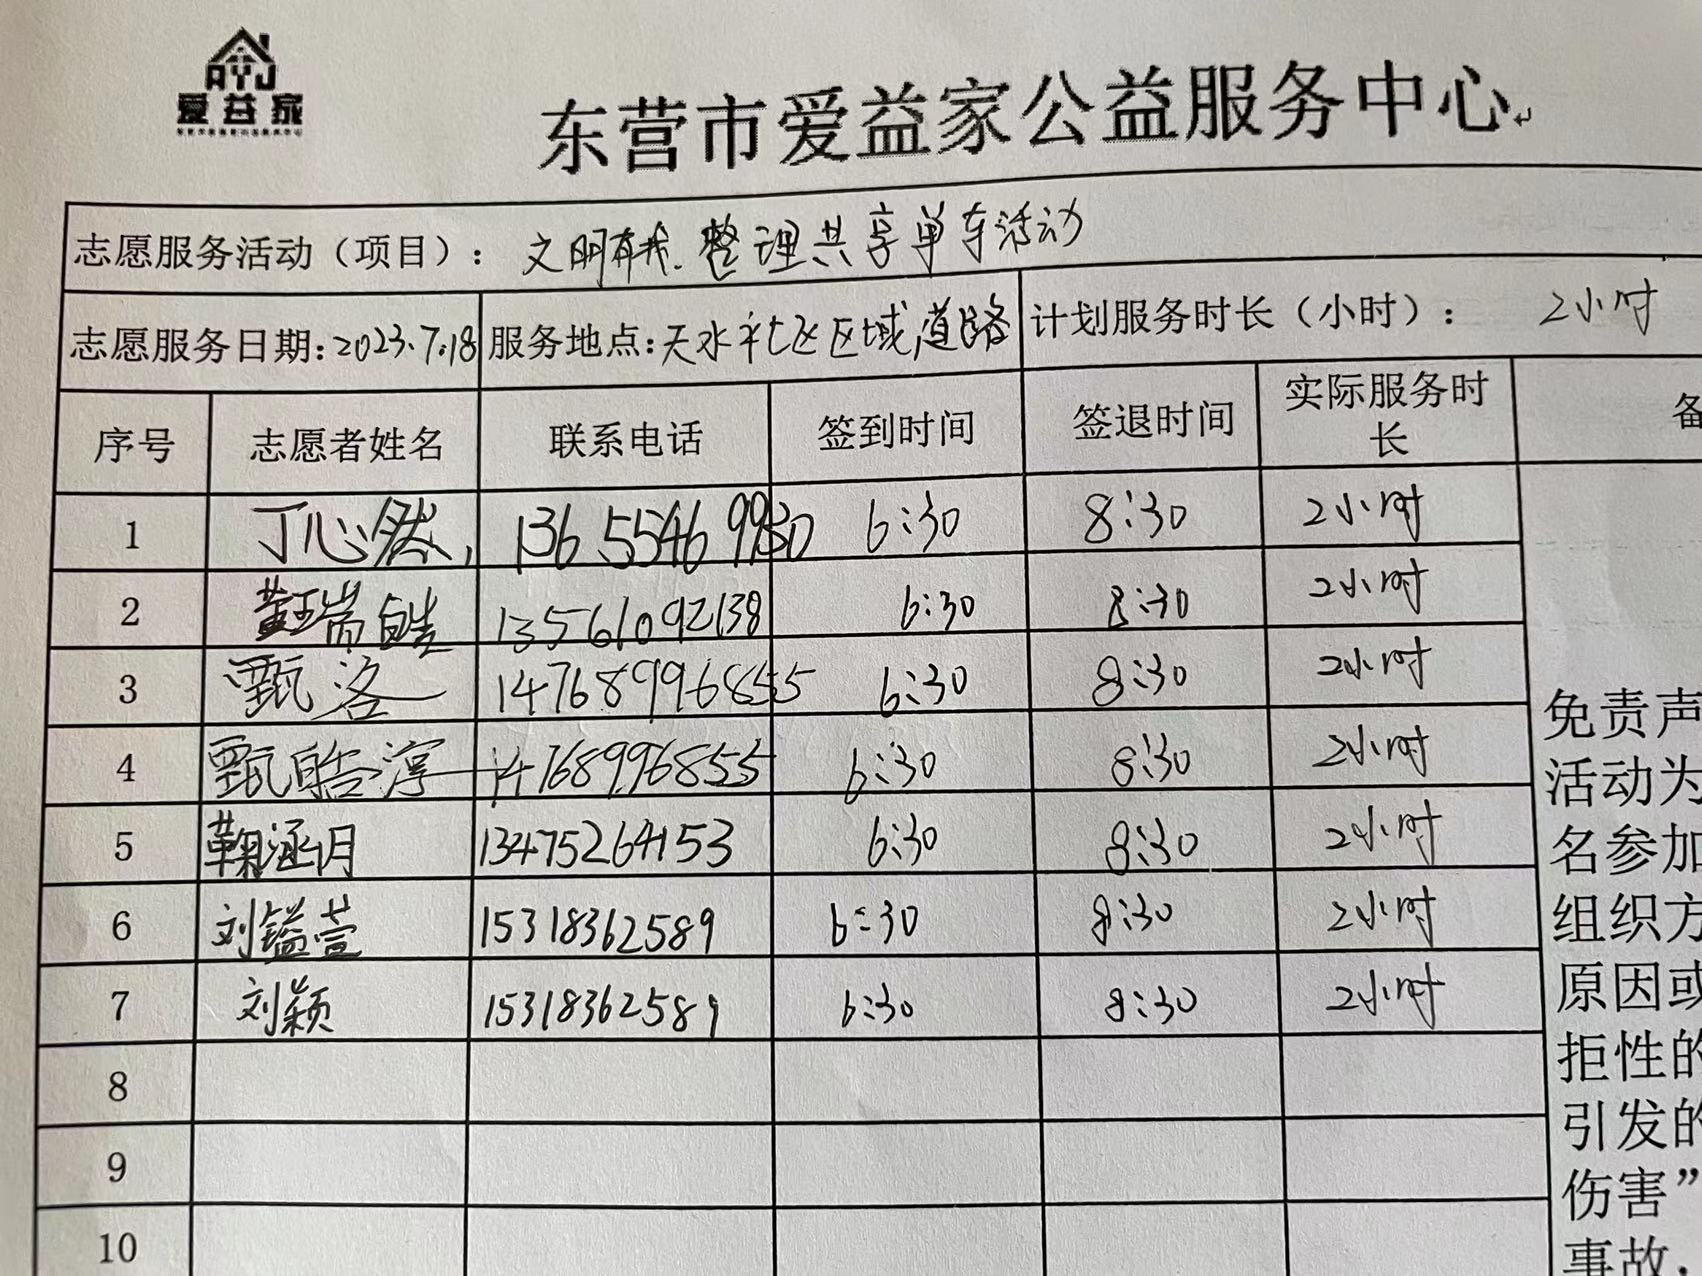 AYJ
爱益家
东营市爱益家公益服务中心
志愿服务活动（项目）： 文明有我.整理共享单车活动
志愿服务日期:2023.7.18 服务地点:天水社区区域道路 计划服务时长（小时）： 2小时
序号 志愿者姓名 联系电话 签到时间 签退时间 实际服务时长 备
1 丁心然, 6:30 8:30 2小时
2 黄瑞皓 13561092138 6:30 8:30 2小时
3 甄洛 14768996855 6:30 8:30 2小时
4 甄皓淳 14768996855 6:30 8:30 2小时
5 鞠涵月 13475264153 6:30 8:30 2小时
6 刘镒萱 15318362589 6:30 8:30 2小时
7 刘颖 15318362589 6:30 8:30 2小时
8
9
10
免责声
活动为
名参加
组织方
原因或
拒性的
引发的
伤害”
事故，